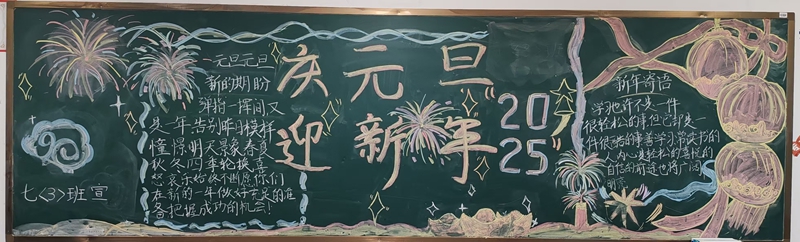 庆元旦
迎新年
2025
一元旦元旦
新的期盼
弹指一挥间又
是一年.告别昨日模样
憧憬明天景象春夏
秋冬四季轮换喜
怒哀乐
在新的一年做好充足的准
备把握成功的机会!
七<3>班宣
新年寄语
学习也许不是一件
很轻松的事但它却是一
件很酷的事善学习常读书的
人内心是轻松的富足的
自信的前途也将广阔
明亮